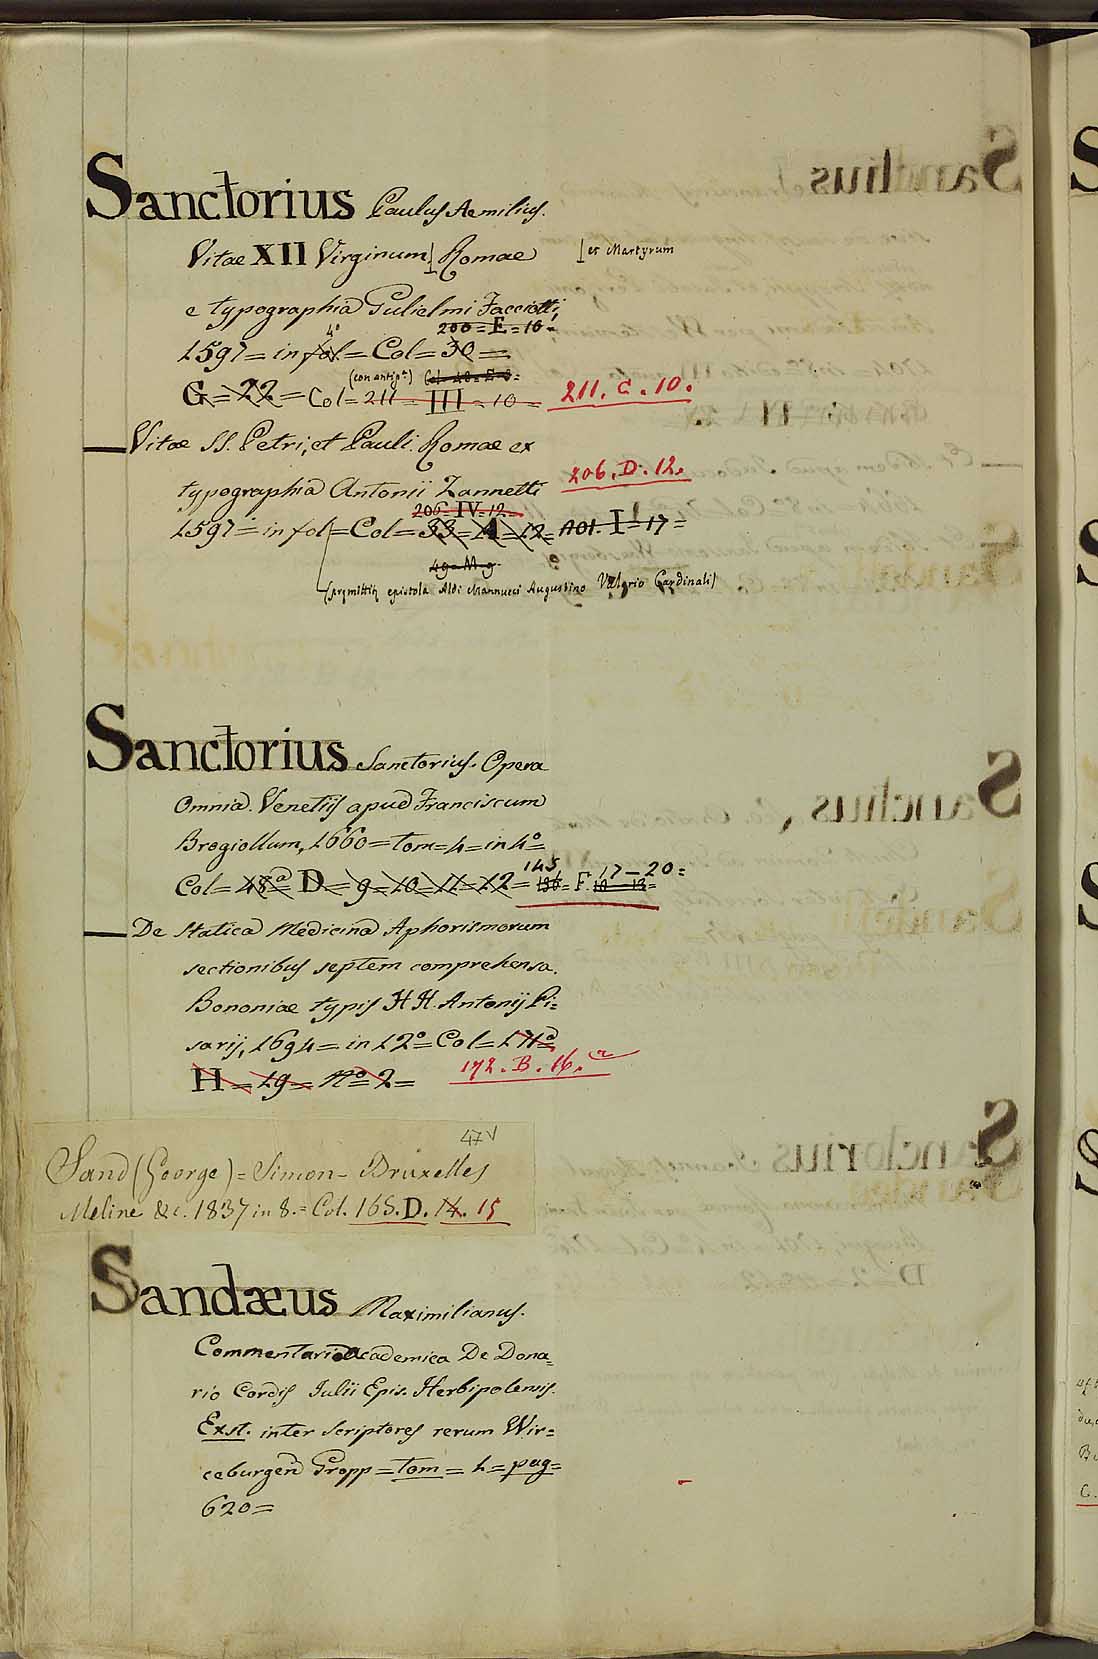 Sanctorius Paulus Aemilius.
Vitae XII Virginum] Romae [et Martyrum
e typographia Gulielmi Facciotti,
200=E=10=
4°
1597=in fol=Col=30=
(con antipᵃ)
G=22=Col=211=III=10= 211. C. 10.
Vitae SS. Petri, et Pauli. Romae ex
typographia Antonii Zannetti 206. D. 12.
206=IV=12=
1597=in fol=Col=33=A=12= I=17=
49=M=9=
(præmittitur epistola Aldi Mannucci Augustino Valerio Cardinali)
Sanctorius Sanctorius. Opera
Omnia. Venetiis apud Franciscum
Brogiollum, 1660=tom=4=in 4°=
145 17-20=
Col=48ᵃ=D=9=10=11=12= =F.
De Statica Medicina Aphorismorum
sectionibus septem comprehensa.
Bononiae typis HH. Antonij Pi=
sarij, 1694=in 12°=Col=171ᵃ=
H=19=N°=2= 172. B. 16.
47V
Sand (George)=Simon-Bruxelles
Meline &c. 1837 in 8.=Col. 165. D. 14. 15
Sandæus Maximilianus.
Commentatio academica De Dona=
rio Cordis Julii Epis. Herbipolensis.
Exst. inter scriptores rerum Wir=
ceburgen Gropp=tom=1=pag=
620=